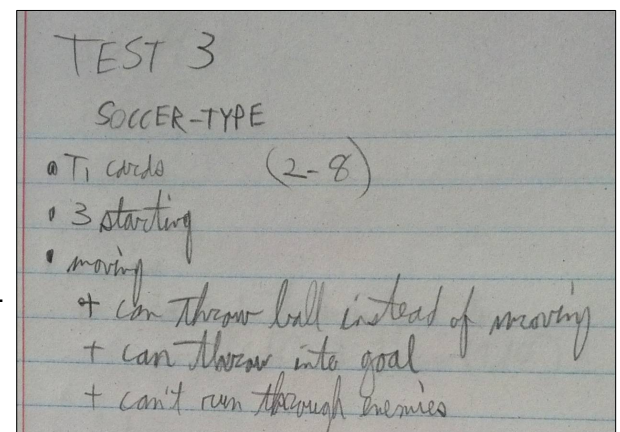 TEST 3
SOCCER-TYPE
• T1 cards (2-8)
• 3 starting
• moving
+ can throw ball instead of moving
+ can throw into goal
+ can't run through enemies